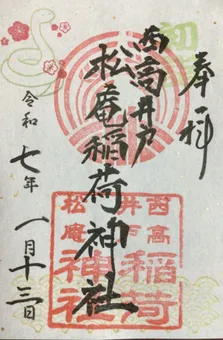 奉拝
西高井戸
松庵稲荷神社
令和七年一月十三日
初巳
西高
井戸
松庵
稲荷
神社